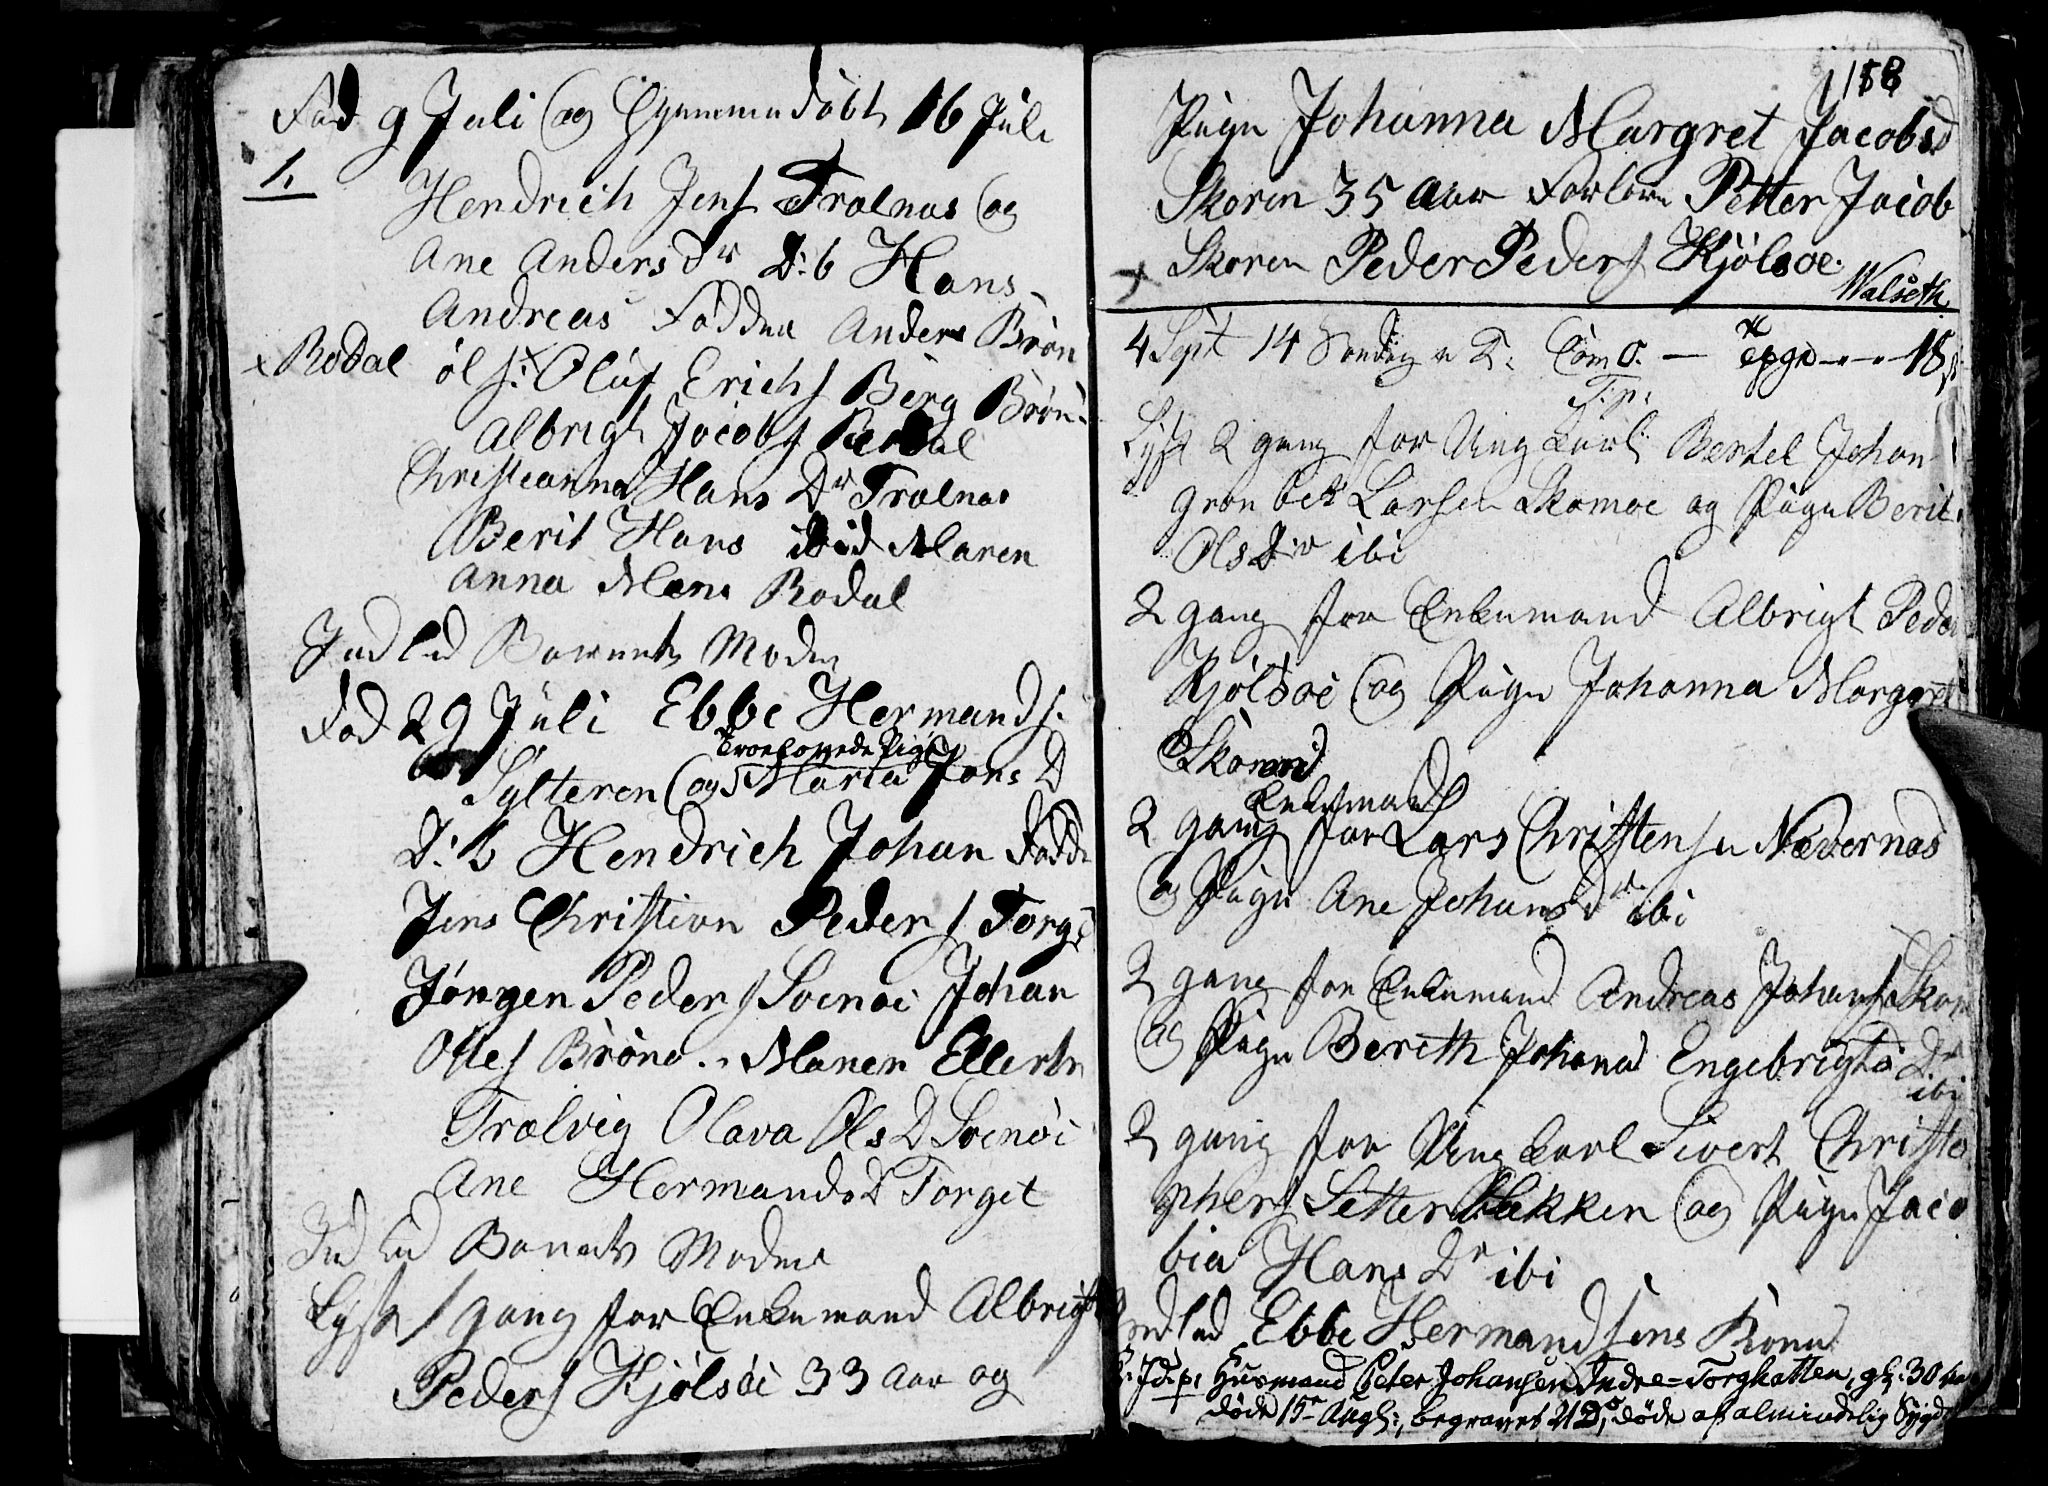 Fød 9 Juli og Hjemmedøbt 16 Juli
1.
Hendrich Jens Trælnæs og
Ane Anders Dr D: b Hans
Andreas Fadder Anders Brøn
x Rodal
öl s: x Oluf Erichs Berg Brøn
Albrigt Jacobs Rerdal
Christianna Hans Dr Trælnæs
Berit Hans ibid Maren
Anna Mens Rodal
Indled Barnets Moder
Fød 29 Juli Ebbe Hermands:
Troelovede Pige
Sylteren og Maria Jons D
D: b Hendrich Johan Fadde
Jens Christian Peders Torg
Jörgen Peders Soenøi Johan
Oles Brönö .. Maren Ellerts
Trælvig Olava Ols D Soenöi
Ane Hermands D Torget
Indled Barnets Moder
Lyst 1 gang for Enkemand Albrigt
Peders Kjölsöi 33 Aar og
158
Pige Johanna Margret Jacobsd
Skoren 35 Aar Forlover Petter Jacob
Skoren Peder Peders Kjölsöe.
Walseth
4 Sept 14 Söndag e T: Com O. — 18
T: p:
Lyst 2 gang for Ung Karl Bertel Johan
Gron bek Larsen Skomoe og Pige Berit
Ols Dr ibi
2 gang for Enkemand Albrigt Peder
Kjölsöi og Pige Johanna Margret
Skoren
Enkemand
2 gang for Lars Christensen Nævernæs
og Pige Ane Johans Dr ibi
2 gang for Enkemand Andreas Johans Skom
og Pige Berith Johana Engebrigts Dr
ibi
2 gang for Ung Karl Sivert Christo
phers Setter Bakken og Pige Jaco
bia Hans Dr ibi
Indled Ebbe Hermandsens Kone
Jd: p: Husmand Peter Johansen Indre-Torghatten, gl: 30
døde 15de Aug:, begravet 21 Do, døde af almindelig Sygd